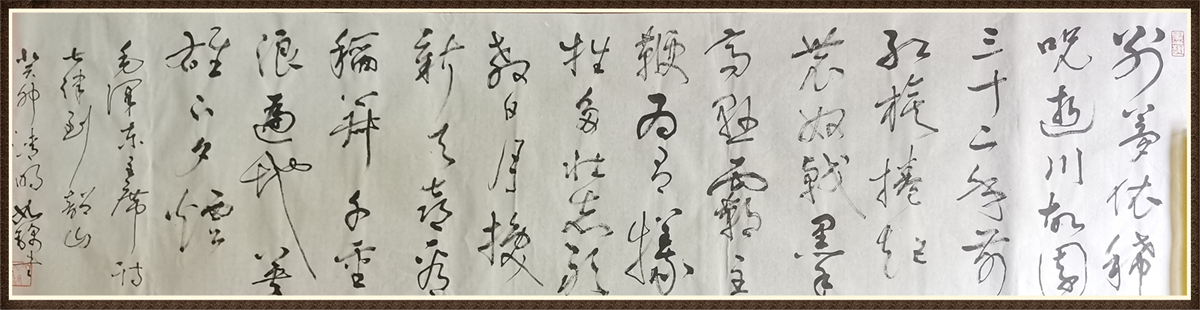 别夢依稀
呪逝川故園
三十二年前
红旗捲起
農奴戟黑手
高懸霸主
鞭为有犧
牲多壮志敢
教日月换
新天喜看
稻菽千重
浪遍地英
雄下夕煙
毛泽东主席诗
七律到韶山
癸卯清明书